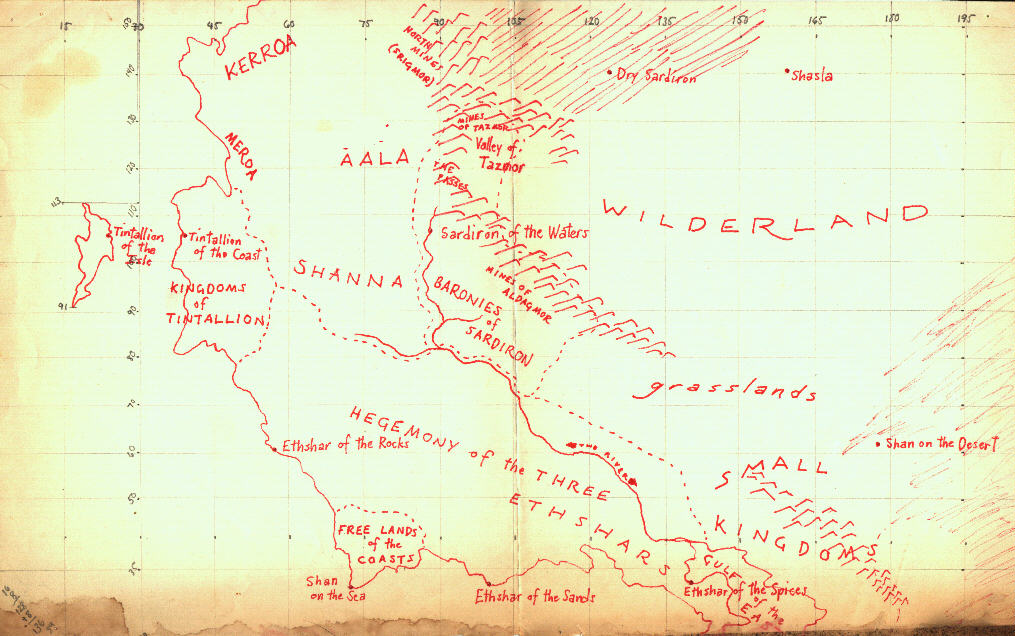 15
45
60
75
90
105
120
135
150
165
180
195
KERROA
NORTH
MINES
(SRIGMOR)
Dry Sardiron
Shasla
140
130
MINES
OF TAZMOR
Valley of
Tazmor
MEROA
AALA
THE
PASSES
120
110
113
WILDERLAND
Tintallion
of the
Isle
Tintallion
of the Coast
Sardiron of the Waters
SHANNA
MINES OF
ALDAGMOR
KINGDOMS
of
TINTALLION
BARONIES
of
SARDIRON
91
90
80
grasslands
70
HEGEMONY of the THREE
ETHSHARS
Ethshar of the Rocks
THE RIVER
Shan on the Desert
60
SMALL
KINGDOMS
50
FREE LANDS
of the
COASTS
GULF
of the
EAST
Shan
on the Sea
Ethshar of the Sands
Ethshar of the Spices